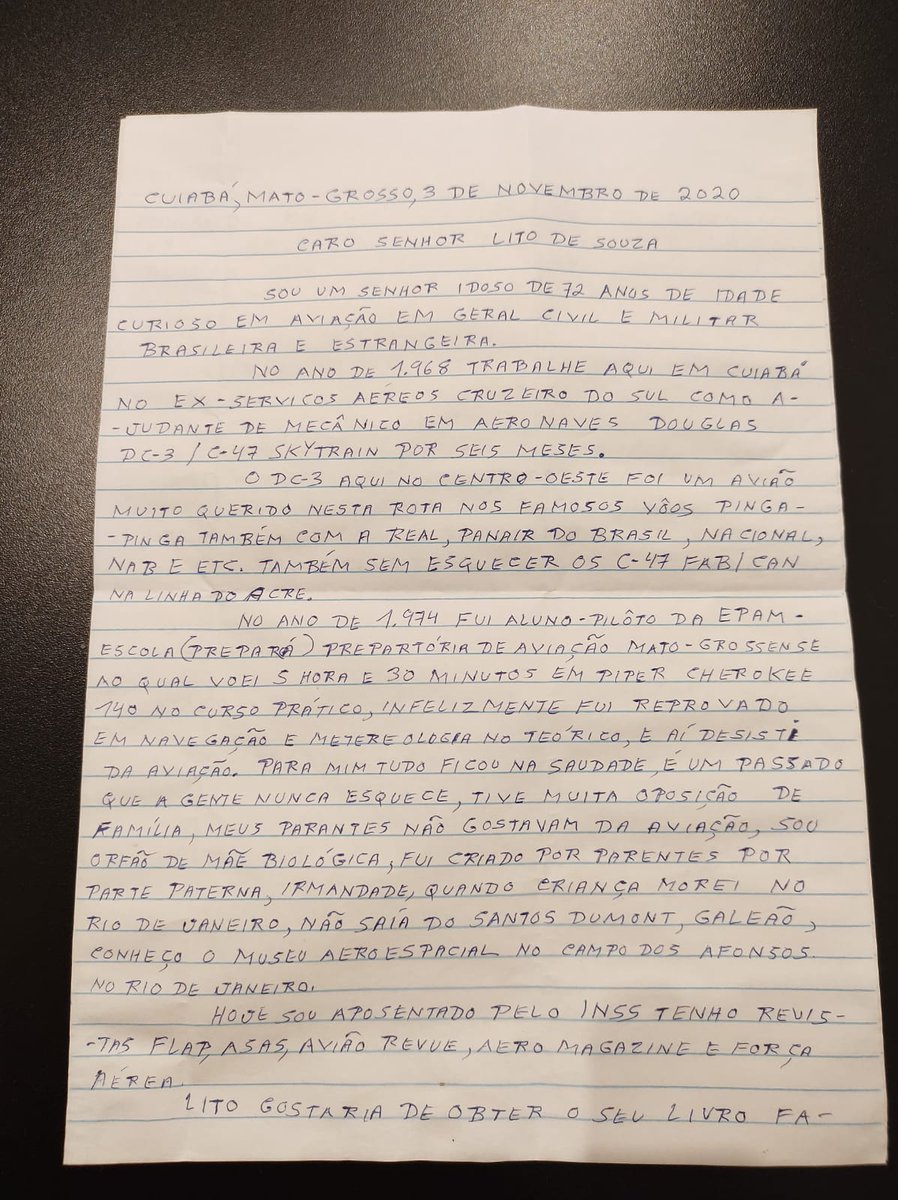 CUIABÁ, MATO-GROSSO, 3 DE NOVEMBRO DE 2020
CARO SENHOR LITO DE SOUZA
SOU UM SENHOR IDOSO DE 72 ANOS DE IDADE
CURIOSO EM AVIAÇÃO EM GERAL CIVIL E MILITAR
BRASILEIRA E ESTRANGEIRA.
NO ANO DE 1.968 TRABALHE AQUI EM CUIABÁ
NO EX-SERVICOS AÉREOS CRUZEIRO DO SUL COMO A-
-JUDANTE DE MECÂNICO EM AERONAVES DOUGLAS
DC-3 / C-47 SKYTRAIN POR SEIS MESES.
O DC-3 AQUI NO CENTRO-OESTE FOI UM AVIÃO
MUITO QUERIDO NESTA ROTA NOS FAMOSOS VÔOS PINGA-
-PINGA TAMBÉM COM A REAL, PANAIR DO BRASIL, NACIONAL,
NAB E ETC. TAMBÉM SEM ESQUECER OS C-47 FAB/CAN
NA LINHA DO ACRE.
NO ANO DE 1.974 FUI ALUNO-PILÔTO DA EPAM-
ESCOLA (PREPARÁ) PREPARTÓRIA DE AVIAÇÃO MATO-GROSSENSE
AO QUAL VOEI 5 HORA E 30 MINUTOS EM PIPER CHEROKEE
140 NO CURSO PRÁTICO, INFELIZMENTE FUI REPROVADO
EM NAVEGAÇÃO E METEREOLOGIA NO TEÓRICO, E AÍ DESISTI
DA AVIAÇÃO. PARA MIM TUDO FICOU NA SAUDADE, É UM PASSADO
QUE A GENTE NUNCA ESQUECE, TIVE MUITA OPOSIÇÃO DE
FAMÍLIA, MEUS PARANTES NÃO GOSTAVAM DA AVIAÇÃO, SOU
ORFÃO DE MÃE BIOLÓGICA, FUI CRIADO POR PARENTES POR
PARTE PATERNA, IRMANDADE, QUANDO CRIANÇA MOREI NO
RIO DE JANEIRO, NÃO SAÍA DO SANTOS DUMONT, GALEÃO,
CONHEÇO O MUSEU AEROESPACIAL NO CAMPO DOS AFONSOS.
NO RIO DE JANEIRO.
HOJE SOU APOSENTADO PELO INSS TENHO REVIS-
-TAS FLAP, ASAS, AVIÃO REVUE, AERO MAGAZINE E FORÇA
AÉREA.
LITO GOSTARIA DE OBTER O SEU LIVRO FA-